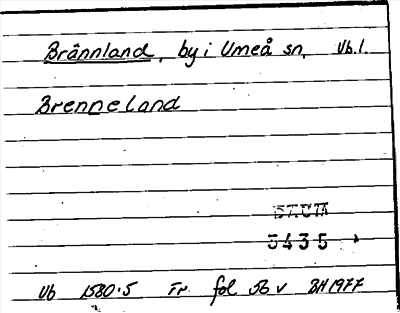 Brännland, by i Umeå sn, Vb.l.
Brenneland
5435
Vb 1580:5 Tr. fol 56 v BH 1977